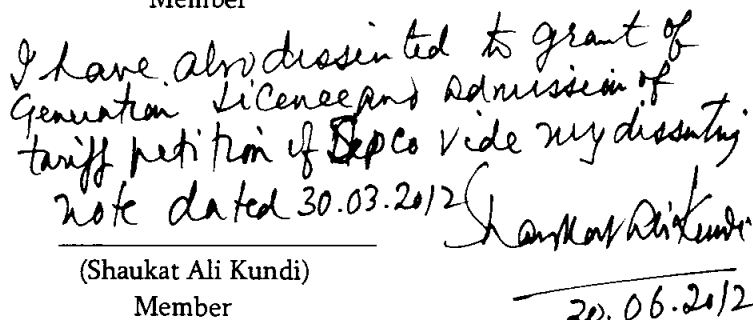 Member
I have also dissented to grant of
Generation Licence and admission of
tariff petition of Sepco vide my dissenting
note dated 30.03.2012
Shaukat Ali Kundi
(Shaukat Ali Kundi)
Member
20.06.2012